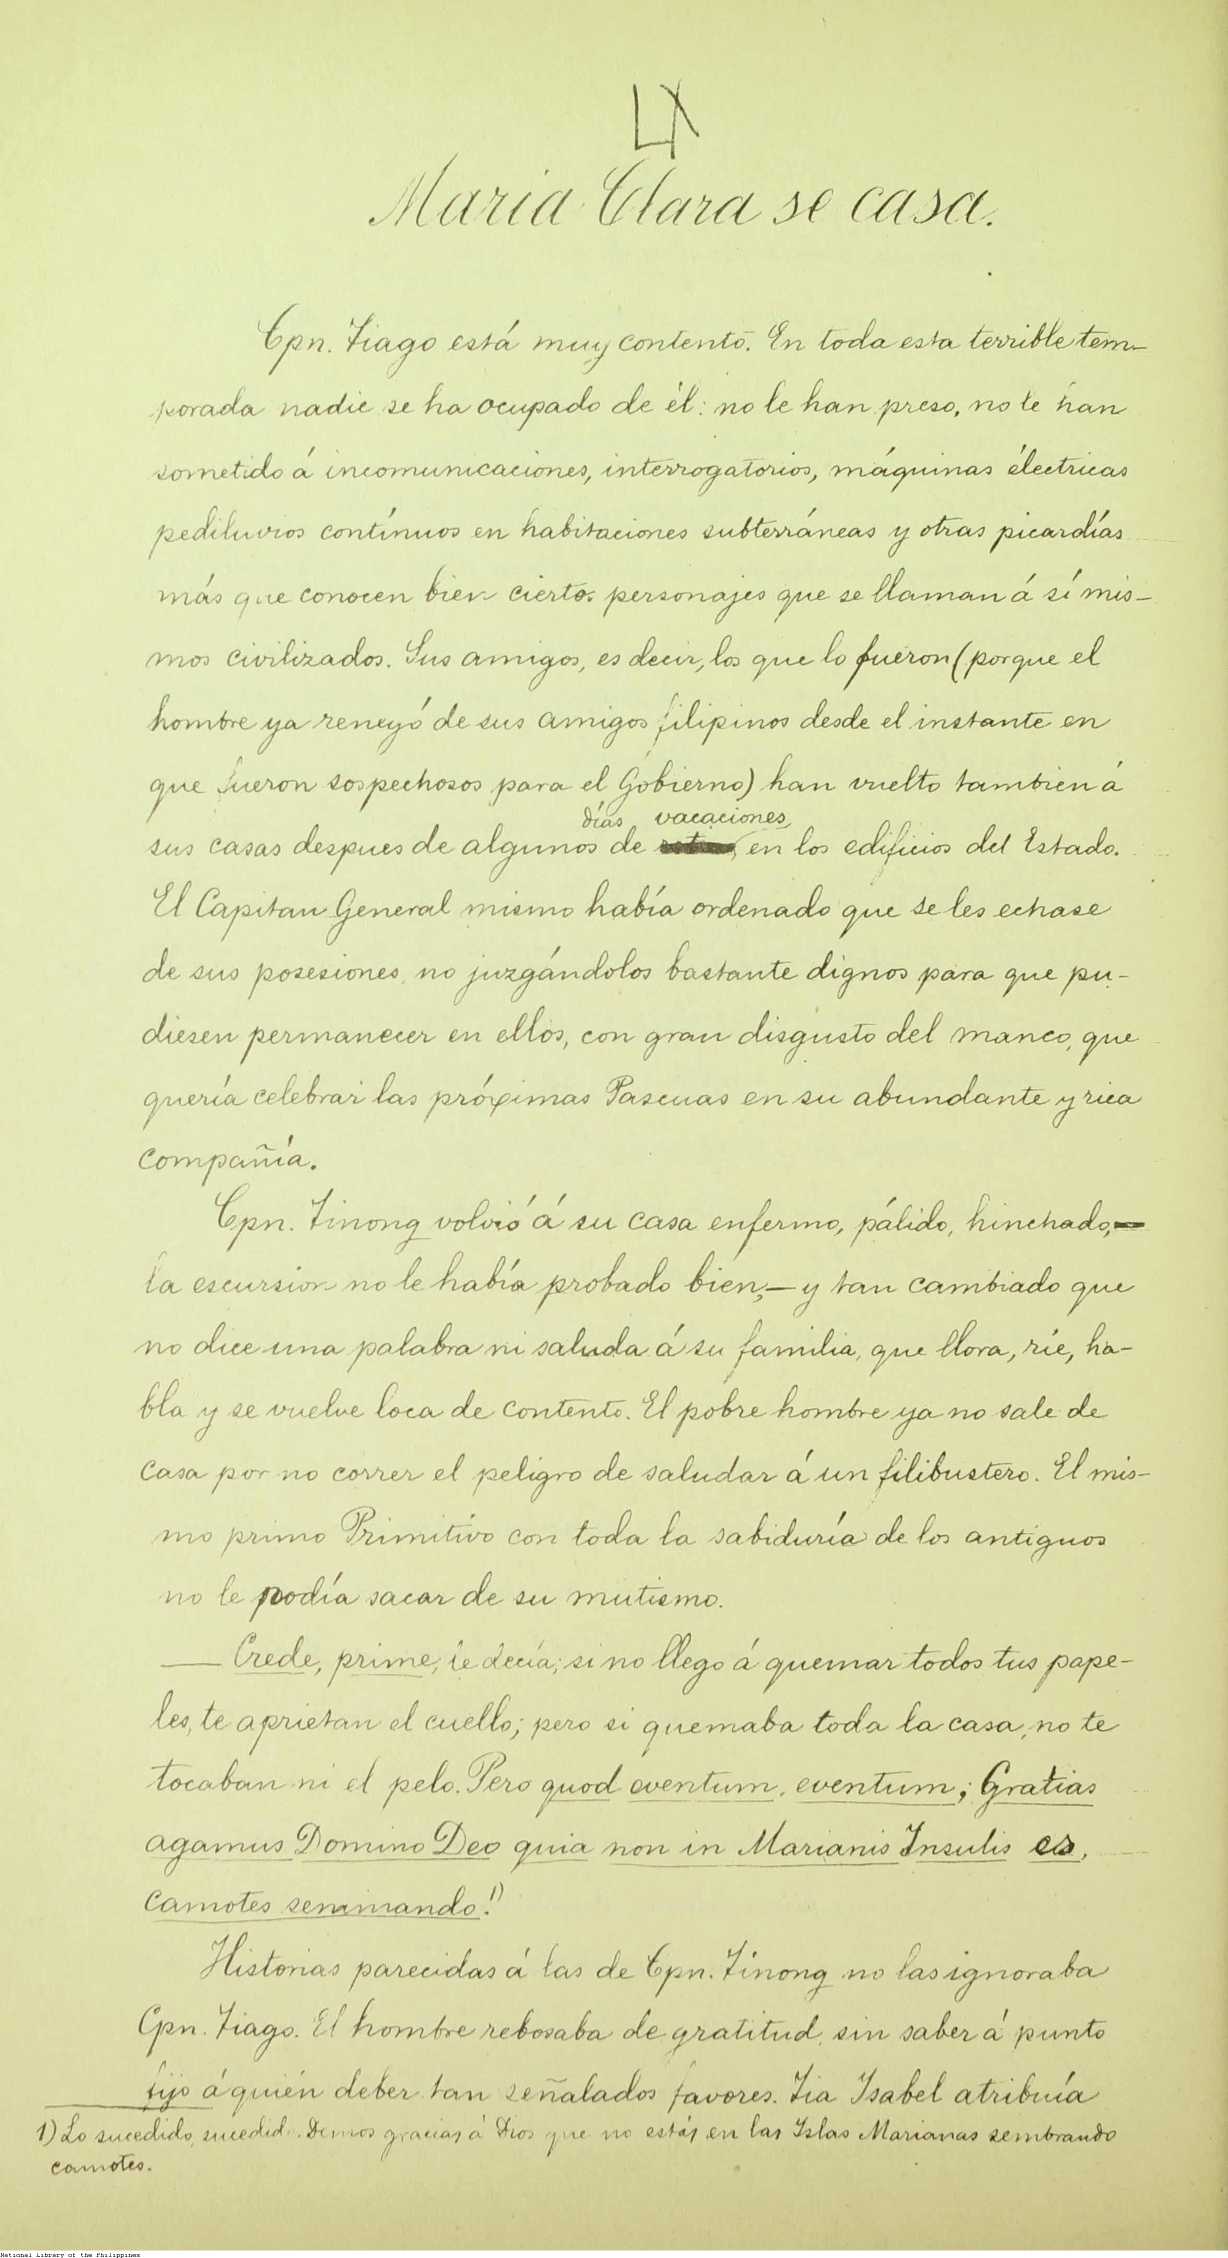 LX
Maria Clara se casa.
Cpn. Tiago está muy contento. En toda esta terrible tem-
porada nadie se ha ocupado de él: no le han preso, no le han
sometido á incomunicaciones, interrogatorios, máquinas électricas
pediluvios contínuos en habitaciones subterráneas y otras picardías
más que conocen bien ciertos personajes que se llaman á sí mis-
mos civilizados. Sus amigos, es decir, los que lo fueron (porque el
hombre ya renegó de sus amigos filipinos desde el instante en
que fueron sospechosos para el Gobierno) han vuelto tambien á
días vacaciones
sus casas despues de algunos de en los edificios del Estado.
El Capitan General mismo había ordenado que se les echase
de sus posesiones, no juzgándolos bastante dignos para que pu-
diesen permanecer en ellos, con gran disgusto del manco, que
quería celebrar las próximas Pascuas en su abundante y rica
compañía.
Cpn. Tinong volvió á su casa enfermo, pálido, hinchado,—
la escursion no le había probado bien,— y tan cambiado que
no dice una palabra ni saluda á su familia, que llora, ríe, ha-
bla y se vuelve loca de contento. El pobre hombre ya no sale de
casa por no correr el peligro de saludar á un filibustero. El mis-
mo primo Primitivo con toda la sabiduría de los antiguos
no le podía sacar de su mutismo.
— Crede, prime, le decía; si no llego á quemar todos tus pape-
les, te aprietan el cuello; pero si quemaba toda la casa, no te
tocaban ni el pelo. Pero quod eventum, eventum; Gratias
agamus Domino Deo quia non in Marianis Insulis es,
camotes seminando!1)
Historias parecidas á las de Cpn. Tinong no las ignoraba
Cpn. Tiago. El hombre rebosaba de gratitud, sin saber á punto
fijo á quién deber tan señalados favores. Tia Isabel atribuía
1) Lo sucedido, sucedido. Demos gracias á Dios que no estás en las Islas Marianas sembrando
camotes.
National Library of the Philippines